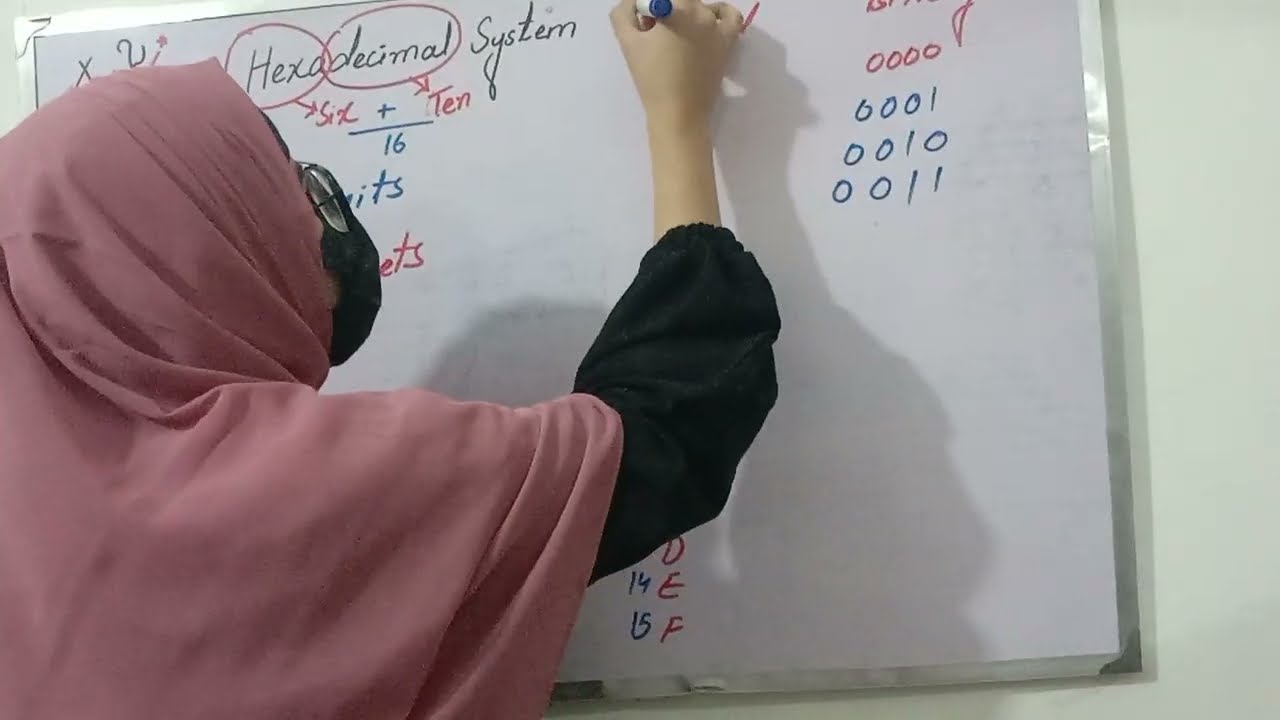 Hexadecimal System
Six + Ten
16
0000
0001
0010
0011
D
14 E
15 F